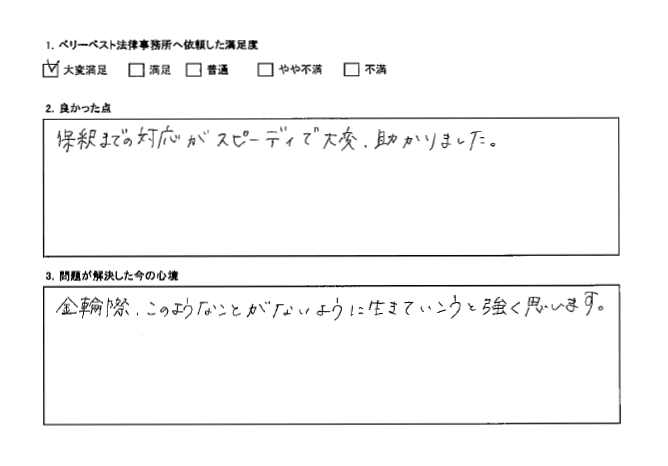 1. ベリーベスト法律事務所へ依頼した満足度
☑ 大変満足 □ 満足 □ 普通 □ やや不満 □ 不満
2. 良かった点
保釈までの対応がスピーディで大変、助かりました。
3. 問題が解決した今の心境
金輪際、このようなことがないように生きていこうと強く思います。